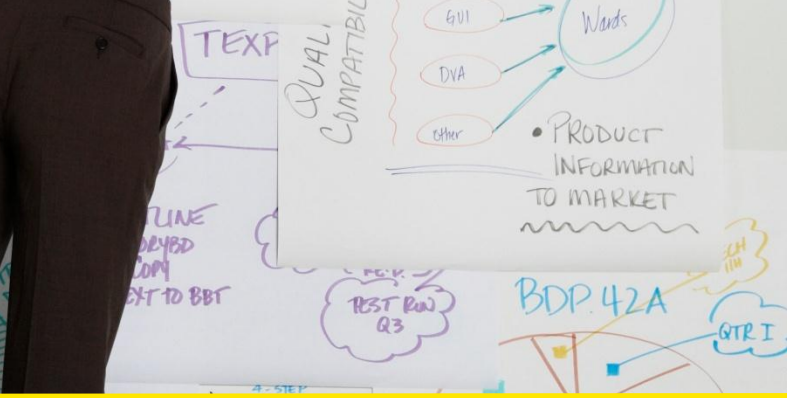 TEXP
QUALI
COMPATIBIL
GUI
DVA
other
Wards
• PRODUCT
INFORMATION
TO MARKET
COPY
EXT TO BBT
TEST RUN
Q3
BDP.42A
QTR I
4-STEP